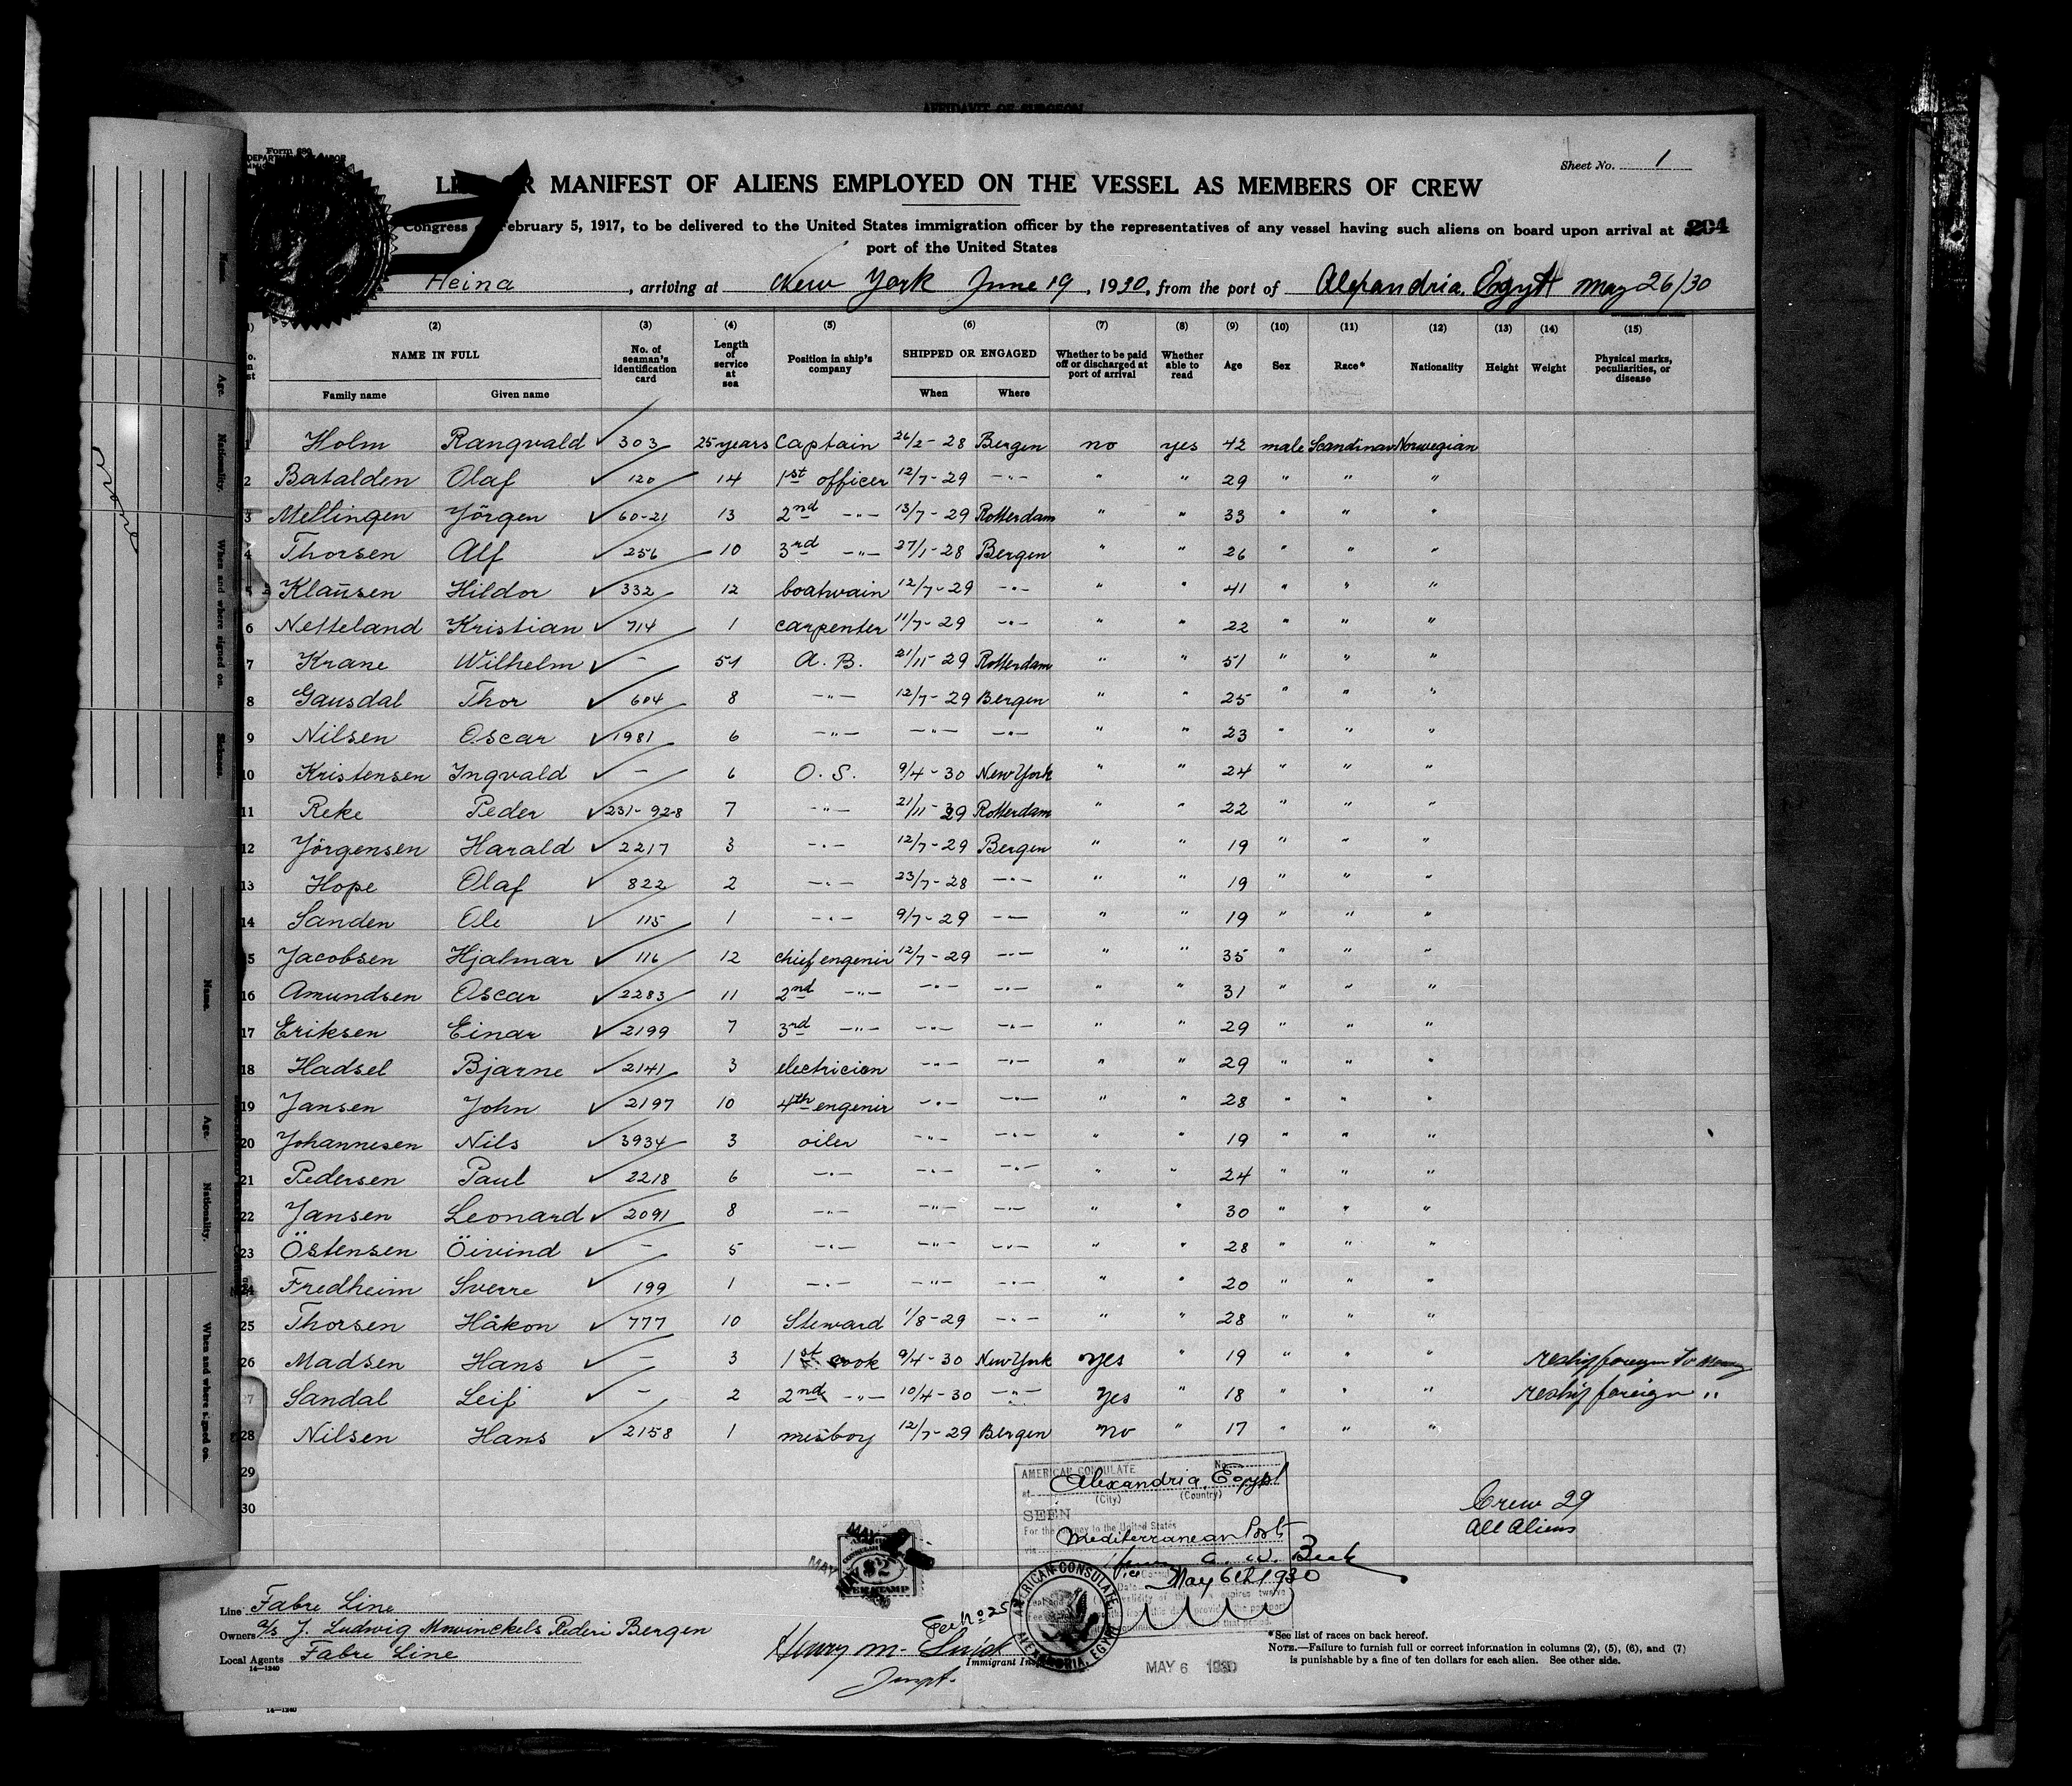 AFFIDAVIT OF SURGEON
Form 680
Sheet No. 1
MANIFEST OF ALIENS EMPLOYED ON THE VESSEL AS MEMBERS OF CREW
Congress February 5, 1917, to be delivered to the United States immigration officer by the representatives of any vessel having such aliens on board upon arrival at 204
port of the United States
Heina, arriving at New York June 19, 1930, from the port of Alexandria, Egypt May 26/30
(2) (3) (4) (5) (6) (7) (8) (9) (10) (11) (12) (13) (14) (15)
NAME IN FULL No. of seaman's identification card Length of service at sea Position in ship's company SHIPPED OR ENGAGED Whether to be paid off or discharged at port of arrival Whether able to read Age Sex Race* Nationality Height Weight Physical marks, peculiarities, or disease
Family name Given name When Where
1 Holm Rangvald 303 25 years Captain 26/2-28 Bergen no yes 42 male Scandinav Norwegian
2 Batalden Olaf 120 14 1st officer 12/7-29 -"- " " 29 " " "
3 Mellingen Jörgen 60-21 13 2nd -"- 13/7-29 Rotterdam " " 33 " " "
4 Thorsen Alf 256 10 3rd -"- 27/1-28 Bergen " " 26 " " "
5 Klaűsen Hildor 332 12 boatwain 12/7-29 -"- " " 41 " " "
6 Netteland Kristian 714 1 carpenter 11/7-29 -"- " " 22 " " "
7 Krane Wilhelm - 51 A. B. 21/11-29 Rotterdam " " 51 " " "
8 Gausdal Thor 604 8 -"- 12/7-29 Bergen " " 25 " " "
9 Nilsen Oscar 1981 6 -"- -"- -"- " " 23 " " "
10 Kristensen Ingvald - 6 O. S. 9/4-30 New York " " 24 " " "
11 Reke Peder 231-928 7 -"- 21/11-29 Rotterdam " " 22 " " "
12 Jörgensen Harald 2217 3 -"- 12/7-29 Bergen " " 19 " " "
13 Hope Olaf 822 2 -"- 23/7-28 -"- " " 19 " " "
14 Sanden Ole 115 1 -"- 9/7-29 -"- " " 19 " " "
15 Jacobsen Hjalmar 116 12 chief engenir 12/7-29 -"- " " 35 " " "
16 Amundsen Oscar 2283 11 2nd -"- -"- -"- " " 31 " " "
17 Eriksen Einar 2199 7 3rd -"- -"- -"- " " 29 " " "
18 Hadsel Bjarne 2141 3 electricien -"- -"- " " 29 " " "
19 Jansen John 2197 10 4th engenir -"- -"- " " 28 " " "
20 Johannesen Nils 3934 3 oiler -"- -"- " " 19 " " "
21 Pedersen Paul 2218 6 -"- -"- -"- " " 24 " " "
22 Jansen Leonard 2091 8 -"- -"- -"- " " 30 " " "
23 Östensen Öivind - 5 -"- -"- -"- " " 28 " " "
24 Fredheim Sverre 199 1 -"- -"- -"- " " 20 " " "
25 Thorsen Håkon 777 10 Steward 1/8-29 -"- " " 28 " " "
26 Madsen Hans - 3 1st cook 9/4-30 New York yes " 19 " " " reship foreign
27 Sandal Leif - 2 2nd -"- 10/4-30 -"- yes " 18 " " " reship foreign "
28 Nilsen Hans 2158 1 mesboy 12/7-29 Bergen no " 17 " " "
29
30
Crew 29
All Aliens
AMERICAN CONSULATE No.
at Alexandria, Egypt
(City) (Country)
SEEN
For the journey to the United States
via Mediterranean Ports
May 6th 1930
AMERICAN CONSULATE ALEXANDRIA, EGYPT
MAY 6 1930
$2
Line Fabre Line
Owners A/S J. Ludwig Mowinckels Rederi Bergen
Local Agents Fabre Line
14—1240
Henry M.
Immigrant
*See list of races on back hereof.
NOTE.—Failure to furnish full or correct information in columns (2), (5), (6), and (7)
is punishable by a fine of ten dollars for each alien. See other side.
14—1240
Name.
Age.
Nationality.
When and where signed on.
Sickness.
Name.
Age.
Nationality.
When and where signed on.